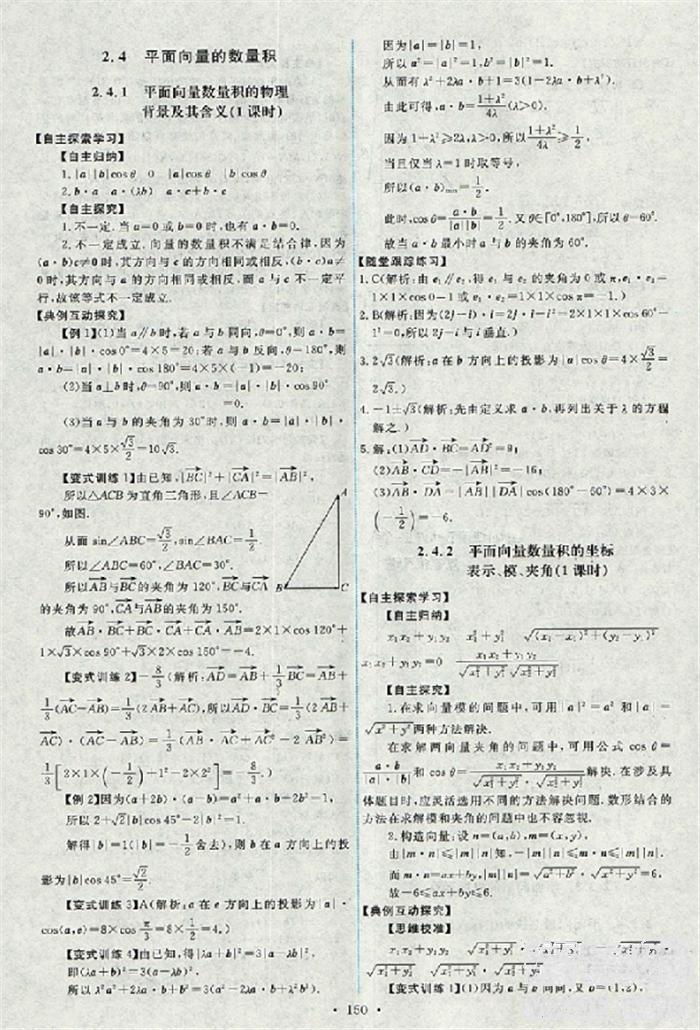 2.4 平面向量的数量积
2.4.1 平面向量数量积的物理
背景及其含义(1课时)
【自主探索学习】
【自主归纳】
1.|a||b|cosθ 0 |a|cosθ |b|cosθ
2.b·a a·(λb) a·c+b·c
【自主探究】
1.不一定.当a=0或b=0时,也有a·b=0.
2.不一定成立.向量的数量积不满足结合律,因为
(a·b)c≠0时,其方向与c的方向相同或相反,(b·c)a≠
0时,其方向与a的方向相同或相反,而a与c不一定平
行,故该等式不一定成立.
【典例互动探究】
【例1】(1)当a∥b时,若a与b同向,θ=0°,则a·b=
|a|·|b|·cos0°=4×5=20;若a与b反向,θ=180°,则
a·b=|a|·|b|·cos180°=4×5×(-1)=-20;
(2)当a⊥b时,θ=90°,则a·b=|a|·|b|·cos90°
=0.
(3)当a与b的夹角为30°时,则a·b=|a|·|b|·
cos30°=4×5×√3/2=10√3.
【变式训练1】由已知,|BC|²+|CA|²=|AB|²,
所以△ACB为直角三角形,且∠ACB=
90°,如图.
从而sin∠ABC=√3/2,sin∠BAC=1/2.
所以∠ABC=60°,∠BAC=30°.
所以AB与BC的夹角为120°,BC与CA
的夹角为90°,CA与AB的夹角为150°.
故AB·BC+BC·CA+CA·AB=2×1×cos120°+
1×√3×cos90°+√3×2×cos150°=-4.
【变式训练2】-8/3(解析:AD=AB+1/3BC=AB+
1/3(AC-AB)=1/3(2AB+AC),所以AD·BC=1/3(2AB+
AC)·(AC-AB)=1/3(AB·AC+AC²-2AB²)=
1/3[2×1×(-1/2)+1²-2×2²]=-8/3.)
【例2】因为(a+2b)·(a-b)=a²+a·b-2b²=1,
所以2+√2|b|cos45°-2|b|²=1.
解得|b|=1(|b|=-1/2舍去),则b在a方向上的投
影为|b|cos45°=√2/2.
【变式训练3】A(解析:a在e方向上的投影为|a|·
cos⟨a,e⟩=8×cosπ/3=8×1/2=4.)
【变式训练4】由已知,得|λa+b|²=3|a-λb|²,
即(λa+b)²=3(a-λb)².
所以λ²a²+2λa·b+b²=3(a²-2λa·b+λ²b²)
因为|a|=|b|=1,
所以a²=|a|²=1,b²=|b|²=1.
从而有λ²+2λa·b+1=3(1-2λa·b+λ²).
由此可得,a·b=1+λ²/4λ(λ>0).
因为1+λ²≥2λ,λ>0,所以1+λ²/4λ≥1/2,
当且仅当λ=1时取等号,
所以(a·b)min=1/2.
此时,cosθ=a·b/|a||b|=1/2.又θ∈[0°,180°],所以θ=60°.
故当a·b最小时a与b的夹角为60°.
【随堂跟踪练习】
1.C(解析:由e₁∥e₂,得e₁与e₂的夹角为0或π,e₁·e₂=
1×1×cos0=1或e₁·e₂=1×1×cosπ=-1.)
2.B(解析:因为(2j-i)·i=2j·i-i²=2×1×1×cos60°-
1²=0,所以2j-i与i垂直.)
3.2√3(解析:a在b方向上的投影为|a|cosθ=4×√3/2=
2√3.)
4.-1±√3(解析:先由定义求a·b,再列出关于λ的方程
解之.)
5.解:(1)AD·BC=AD²=9;
(2)AB·CD=-|AB|²=-16;
(3)AB·DA=|AB||DA|cos(180°-60°)=4×3×
(-1/2)=-6.
2.4.2 平面向量数量积的坐标
表示、模、夹角(1课时)
【自主探索学习】
【自主归纳】
x₁x₂+y₁y₂ x₁²+y₁² √(x₂-x₁)²+(y₂-y₁)²
x₁x₂+y₁y₂=0 x₁x₂+y₁y₂/√x₁²+y₁²√x₂²+y₂²
【自主探究】
1.在求向量模的问题中,可用|a|²=a²和|a|=
√x²+y²两种方法解决.
在求解两向量夹角的问题中,可用公式cosθ=
a·b/|a|·|b|和cosθ=x₁x₂+y₁y₂/√x₁²+y₁²·√x₂²+y₂²解决.在涉及具
体题目时,应灵活选用不同的方法解决问题.数形结合的
方法在求解模和夹角的问题中也不容忽视.
2.构造向量:设n=(a,b),m=(x,y),
由|m·n|≤|m||n|知,-|m||n|≤m·n≤|m||n|.
而m·n=ax+by,|m||n|=√a²+b²·√x²+y²=6,
故-6≤ax+by≤6.
【典例互动探究】
【思维校准】
x₁x₂+y₁y₂ √x₁²+y₁² √x₂²+y₂²
√x₁²+y₁² √x₂²+y₂²
【变式训练1】(1)因为a与b同向,又b=(1,2),
150